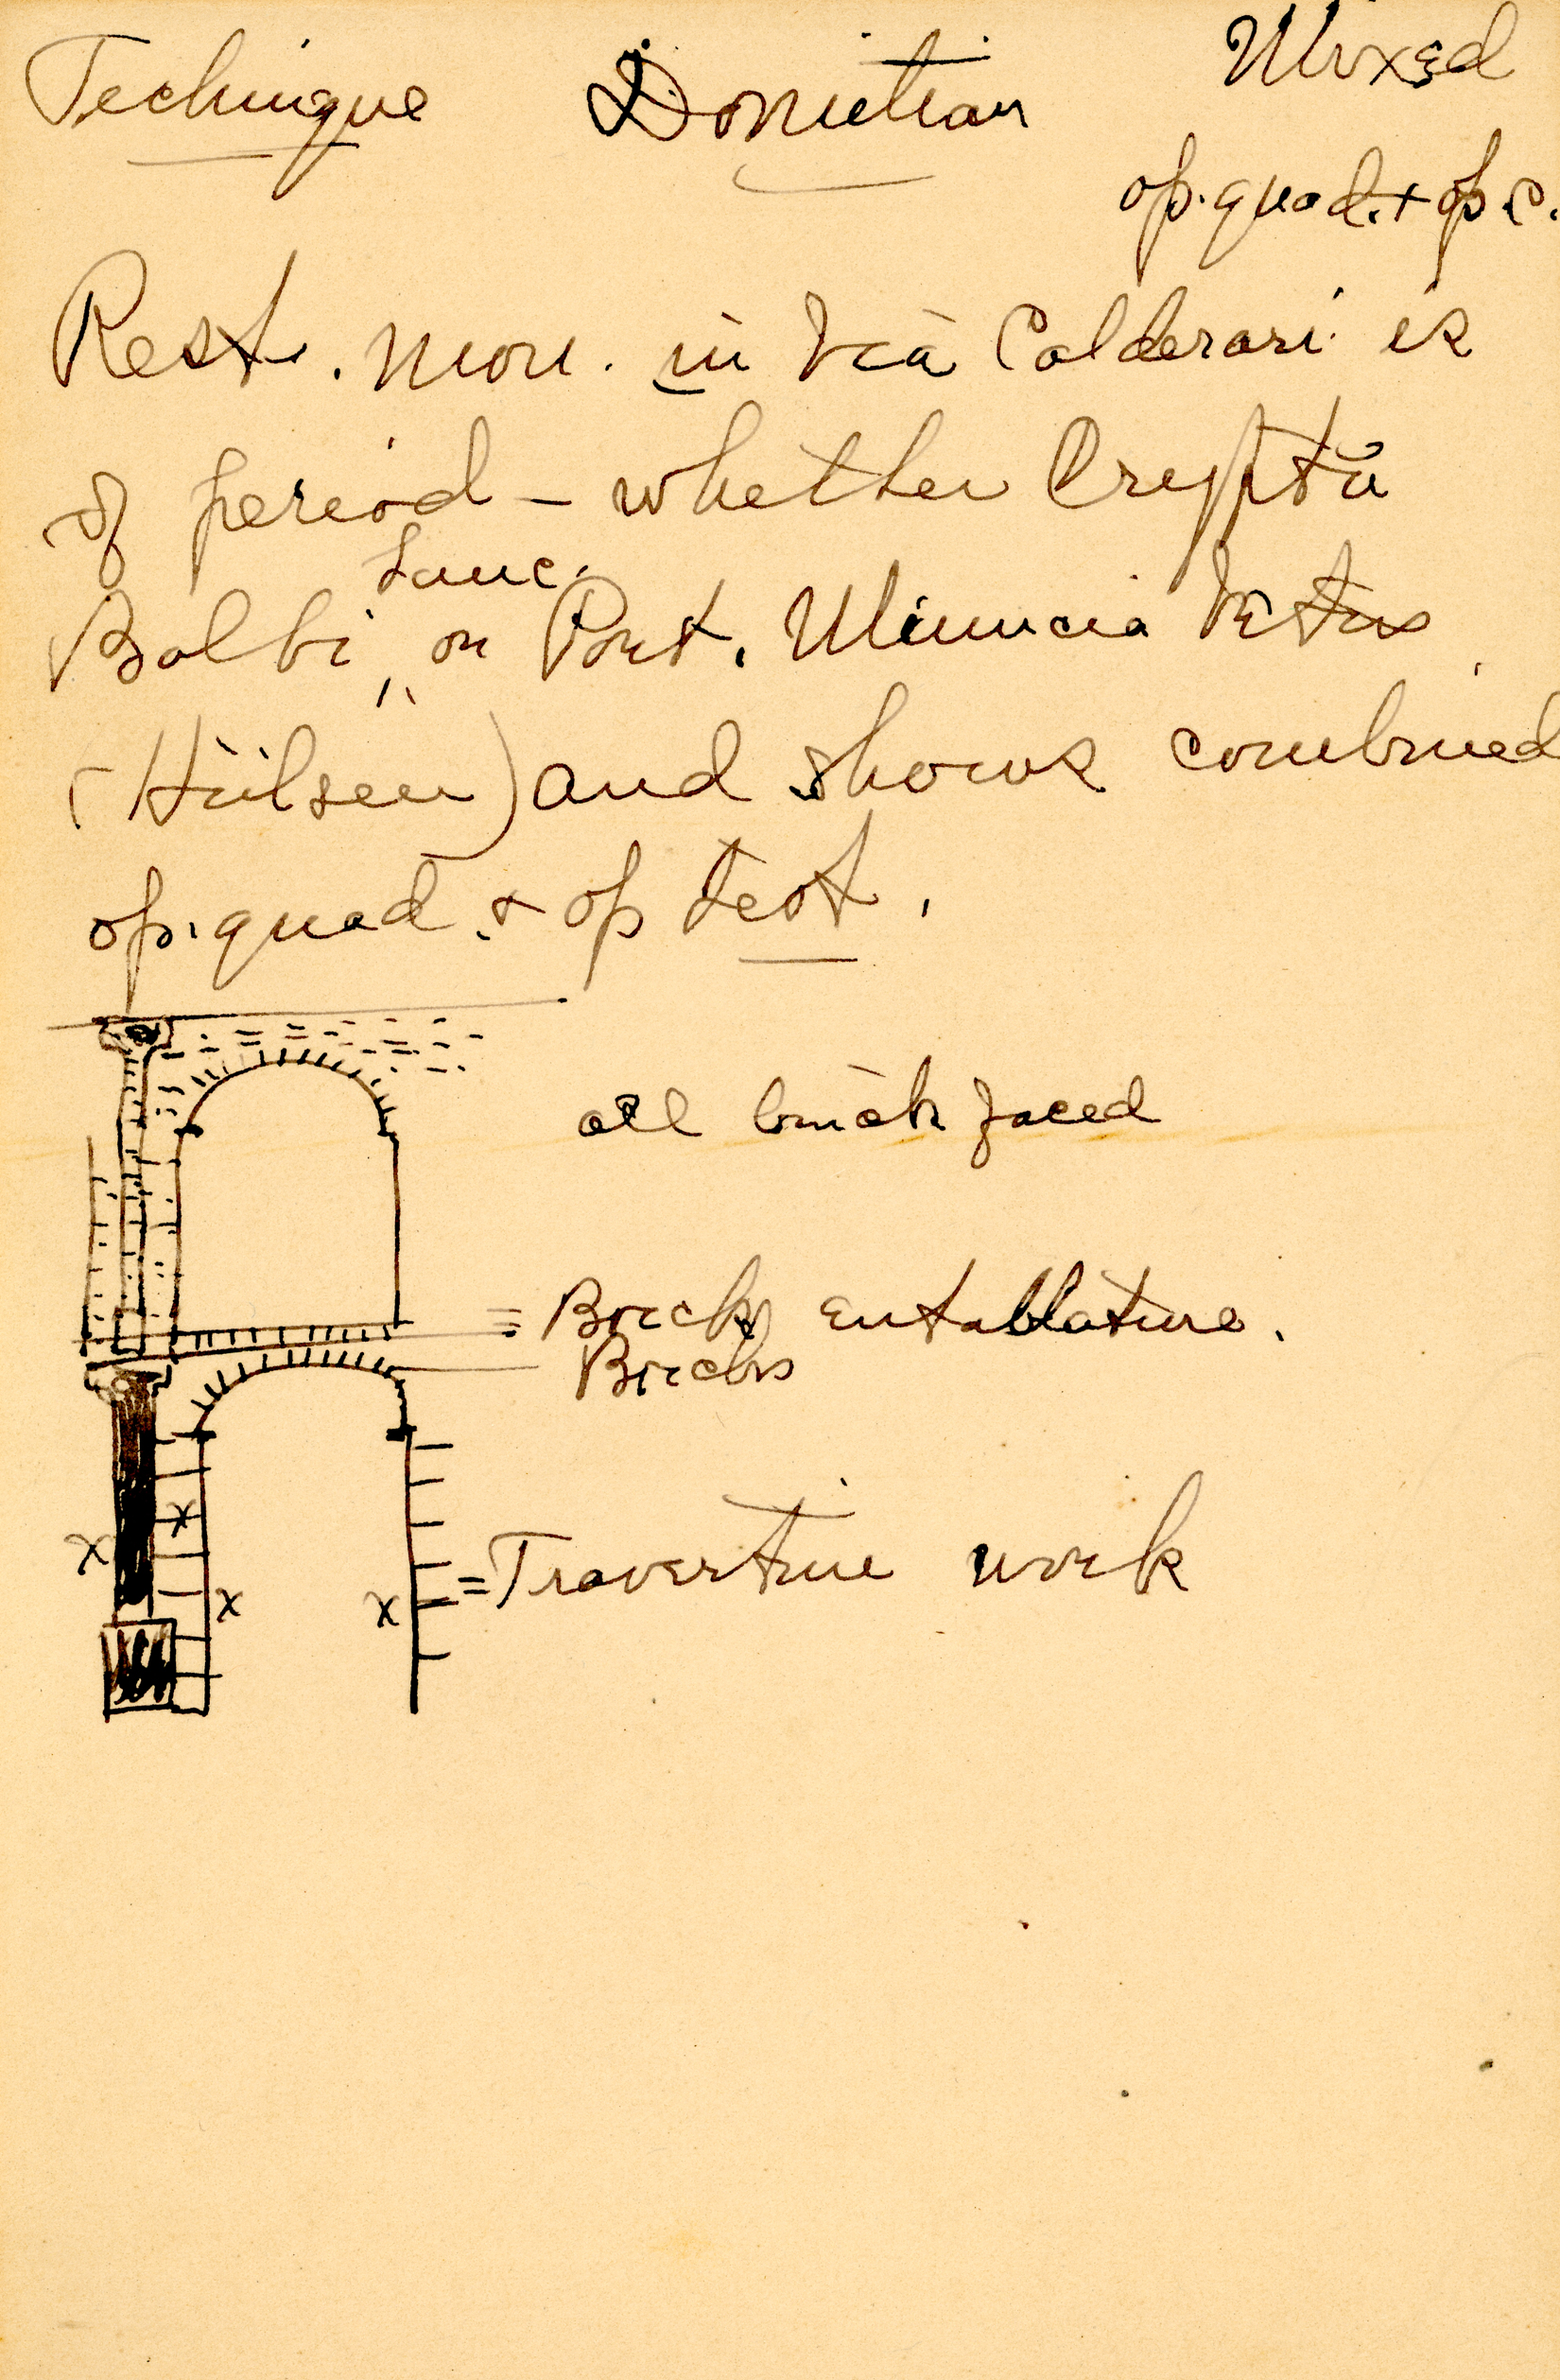 Technique Domitian Mixed
op. quad. + op. c.
Rest. mon. in Via Calderari is
of period – whether Crypta
Balbi, Lanc. or Port. Minucia Vetus
(Hülsen) and shows combined
op. quad. & op test.
all brick faced
= Brick entablature.
Bricks
x x
x x = Travertine work